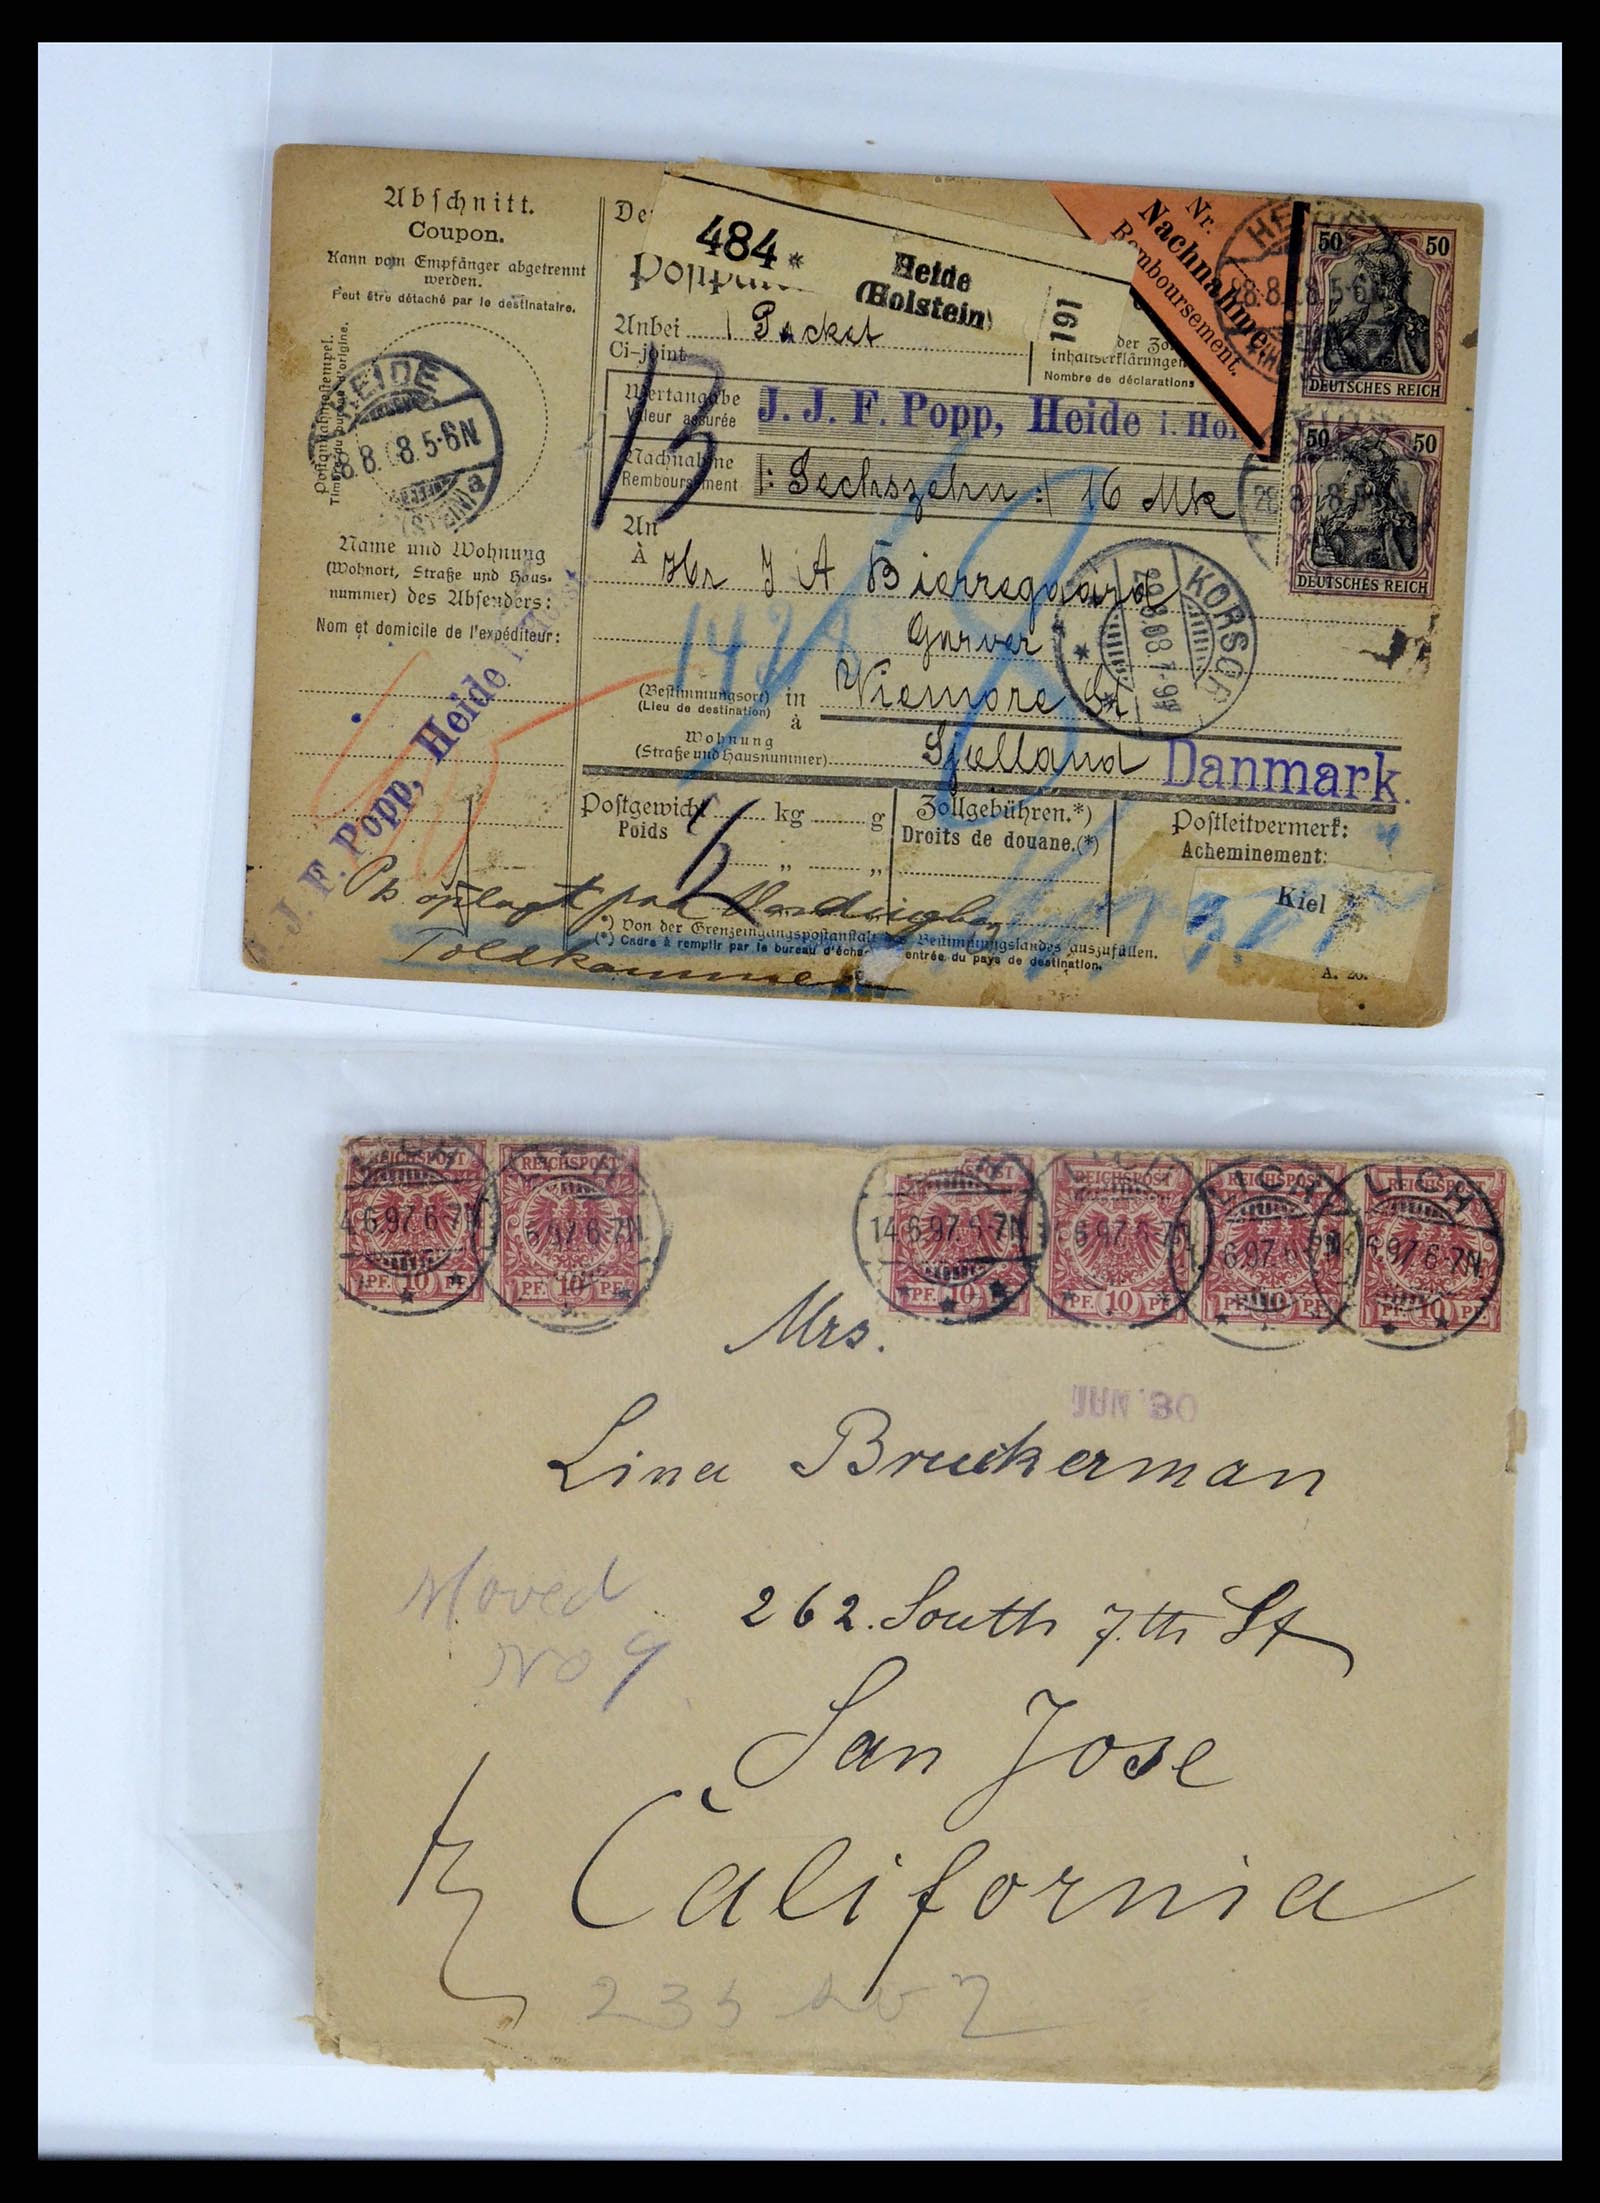 Abschnitt.
Coupon.
Kann vom Empfänger abgetrennt
werden.
Peut être détaché par le destinataire.
Postannahmestempel.
Timbre du bureau d'origine.
HEIDE
8.8. 8. 5-6N
Name und Wohnung
(Wohnort, Straße und Haus-
nummer) des Absenders:
Nom et domicile de l'expéditeur:
J. J. F. Popp, Heide
484 *
Heide
(Holstein)
191
Anbei 1 Packet
Ci-joint
der
inhaltserklärungen
Nombre de déclarations
Nr.
Nachnahme
Remboursement.
50 50
DEUTSCHES REICH
50 50
DEUTSCHES REICH
Wertangabe
Valeur assurée
J. J. F. Popp, Heide i. Hol
Nachnahme
Remboursement
|: Sechszehn :| 16 Mk
An
À
Hr J A Bierregaard
Garver
1428
(Bestimmungsort) in
(Lieu de destination) à
Viemore St
KORSØR
29.8.08.
Wohnung
(Straße und Hausnummer)
Sjelland Danmark.
Postgewicht kg g
Poids
Zollgebühren.*)
Droits de douane.(*)
Postleitvermerk:
Acheminement:
Kiel
oplagt paa
Toldkammer
*) Von der Grenzeingangspostanstalt des Bestimmungslandes auszufüllen.
(*) Cadre à remplir par le bureau d'échange entrée du pays de destination.
A. 20.
REICHSPOST
PF. 10 PF.
REICHSPOST
PF. 10 PF.
REICHSPOST
PF. 10 PF.
REICHSPOST
PF. 10 PF.
REICHSPOST
PF. 10 PF.
REICHSPOST
PF. 10 PF.
LICH
14.6.97. 6-7N
Mrs.
JUN 30
Lina Bruckerman
Moved
No 9
262. South 7.th St
San Jose
California